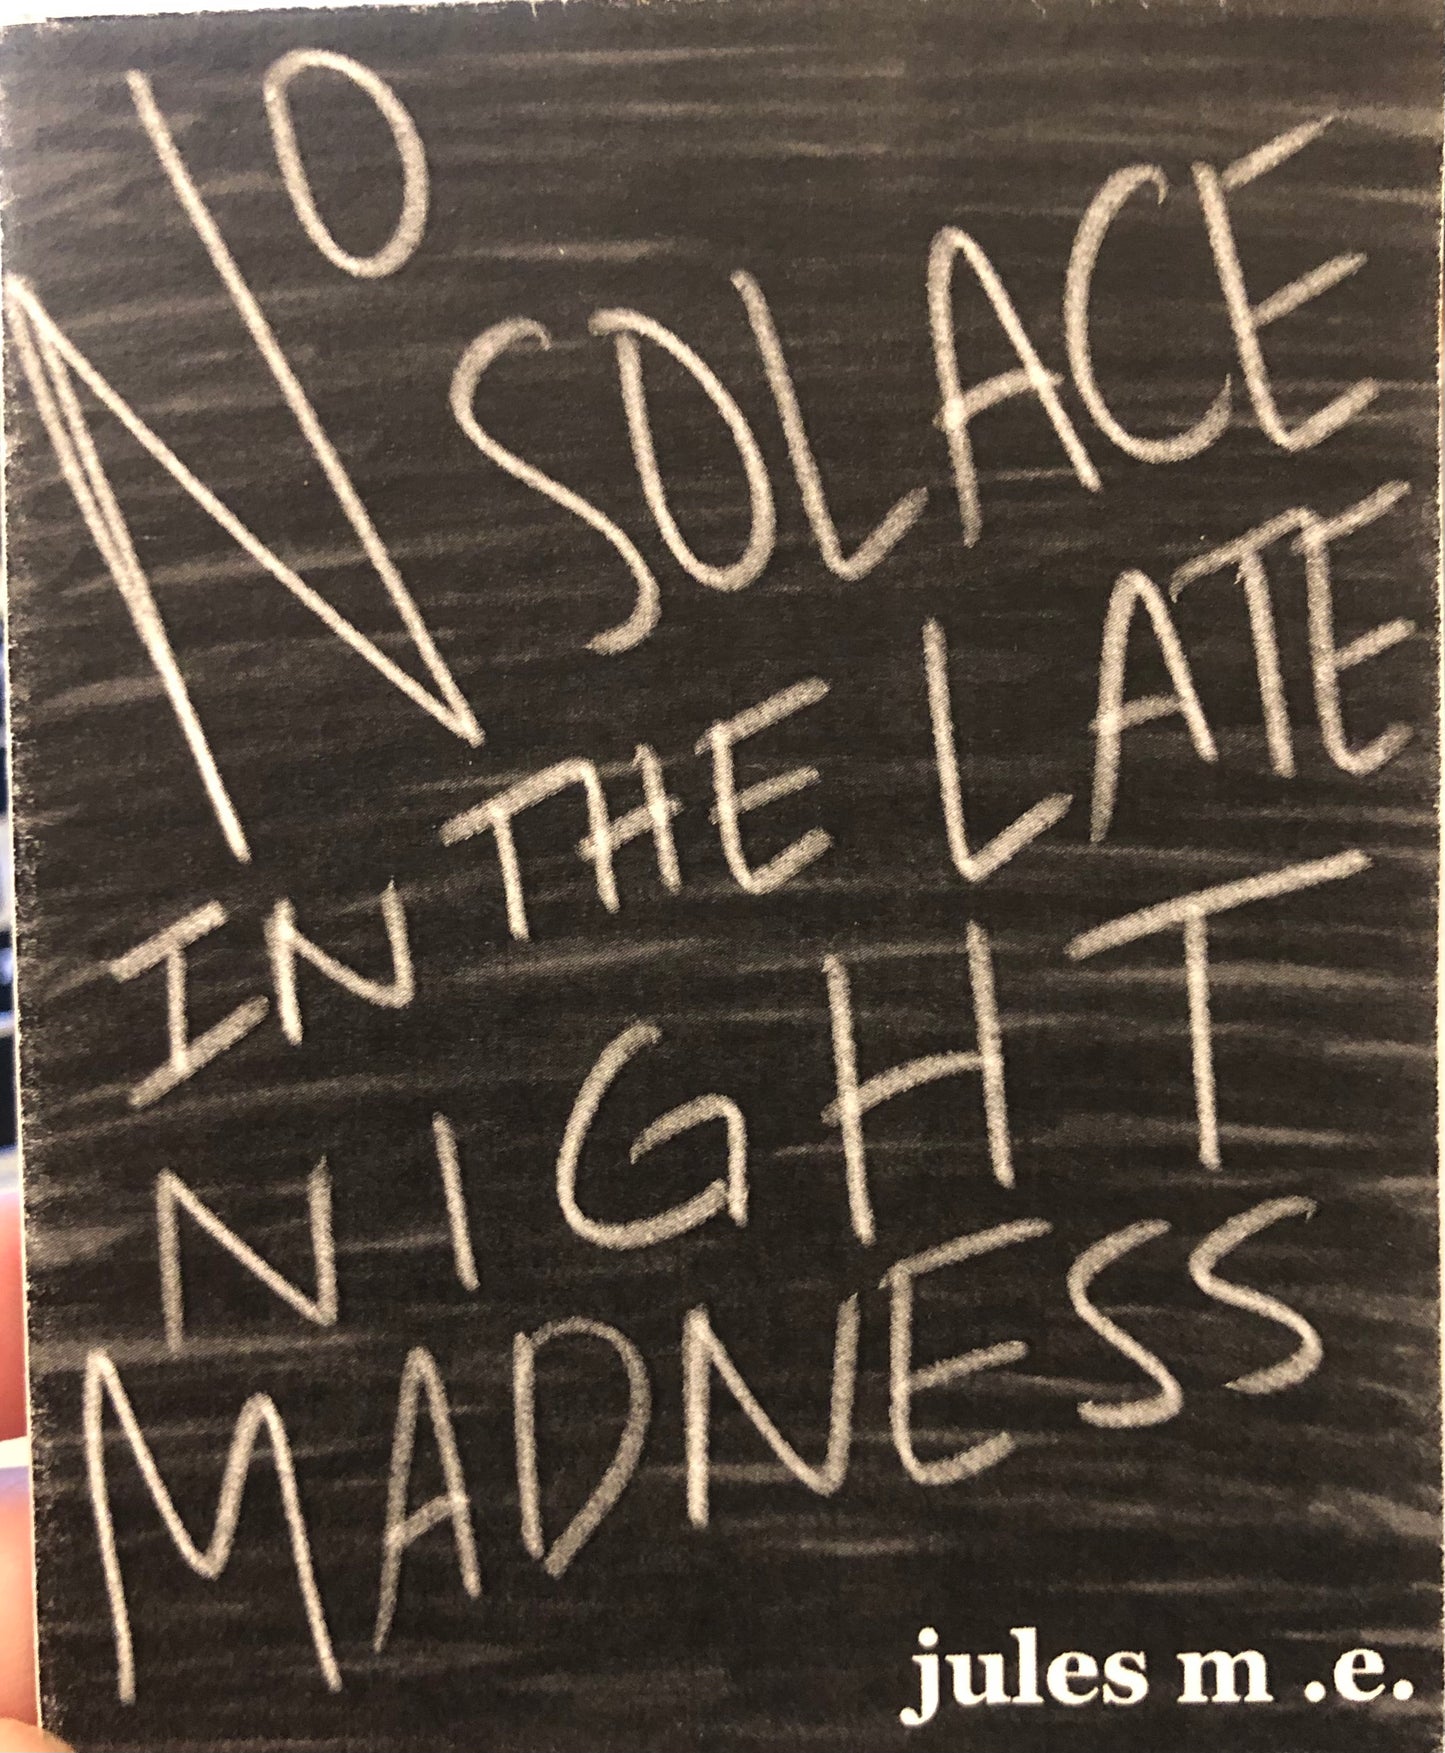 NO
SOLACE
IN THE LATE
NIGHT
MADNESS
jules m .e.